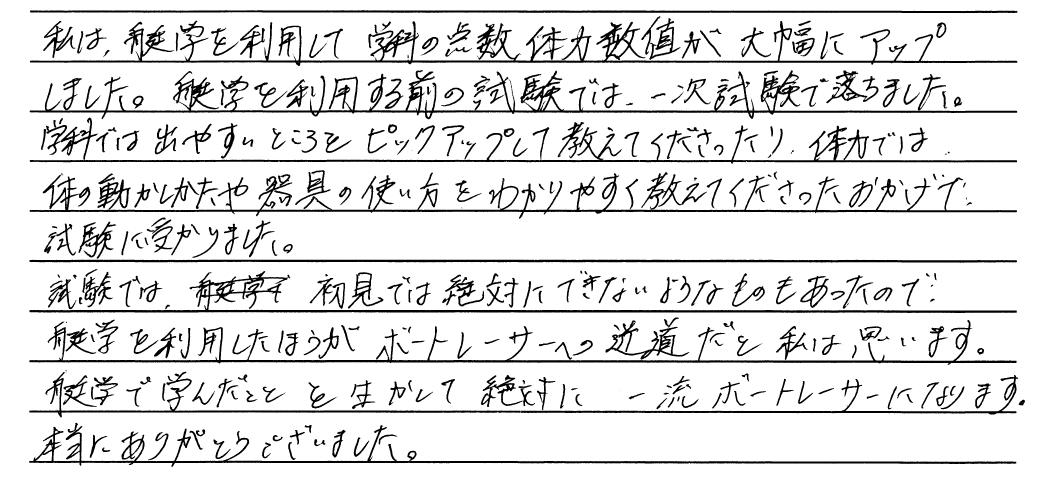 私は、艇学を利用して学科の点数、体力数値が大幅にアップ
しました。艇学を利用する前の試験では、一次試験で落ちました。
学科では出やすいところをピックアップして教えてくださったり、体力では、
体の動かしかたや器具の使い方をわかりやすく教えてくださったおかげで、
試験に受かりました。
試験では、艇学で初見では絶対にできないようなものもあったので、
艇学を利用したほうがボートレーサーへの近道だと私は思います。
艇学で学んだことを生かして絶対に一流ボートレーサーになります。
本当にありがとうございました。